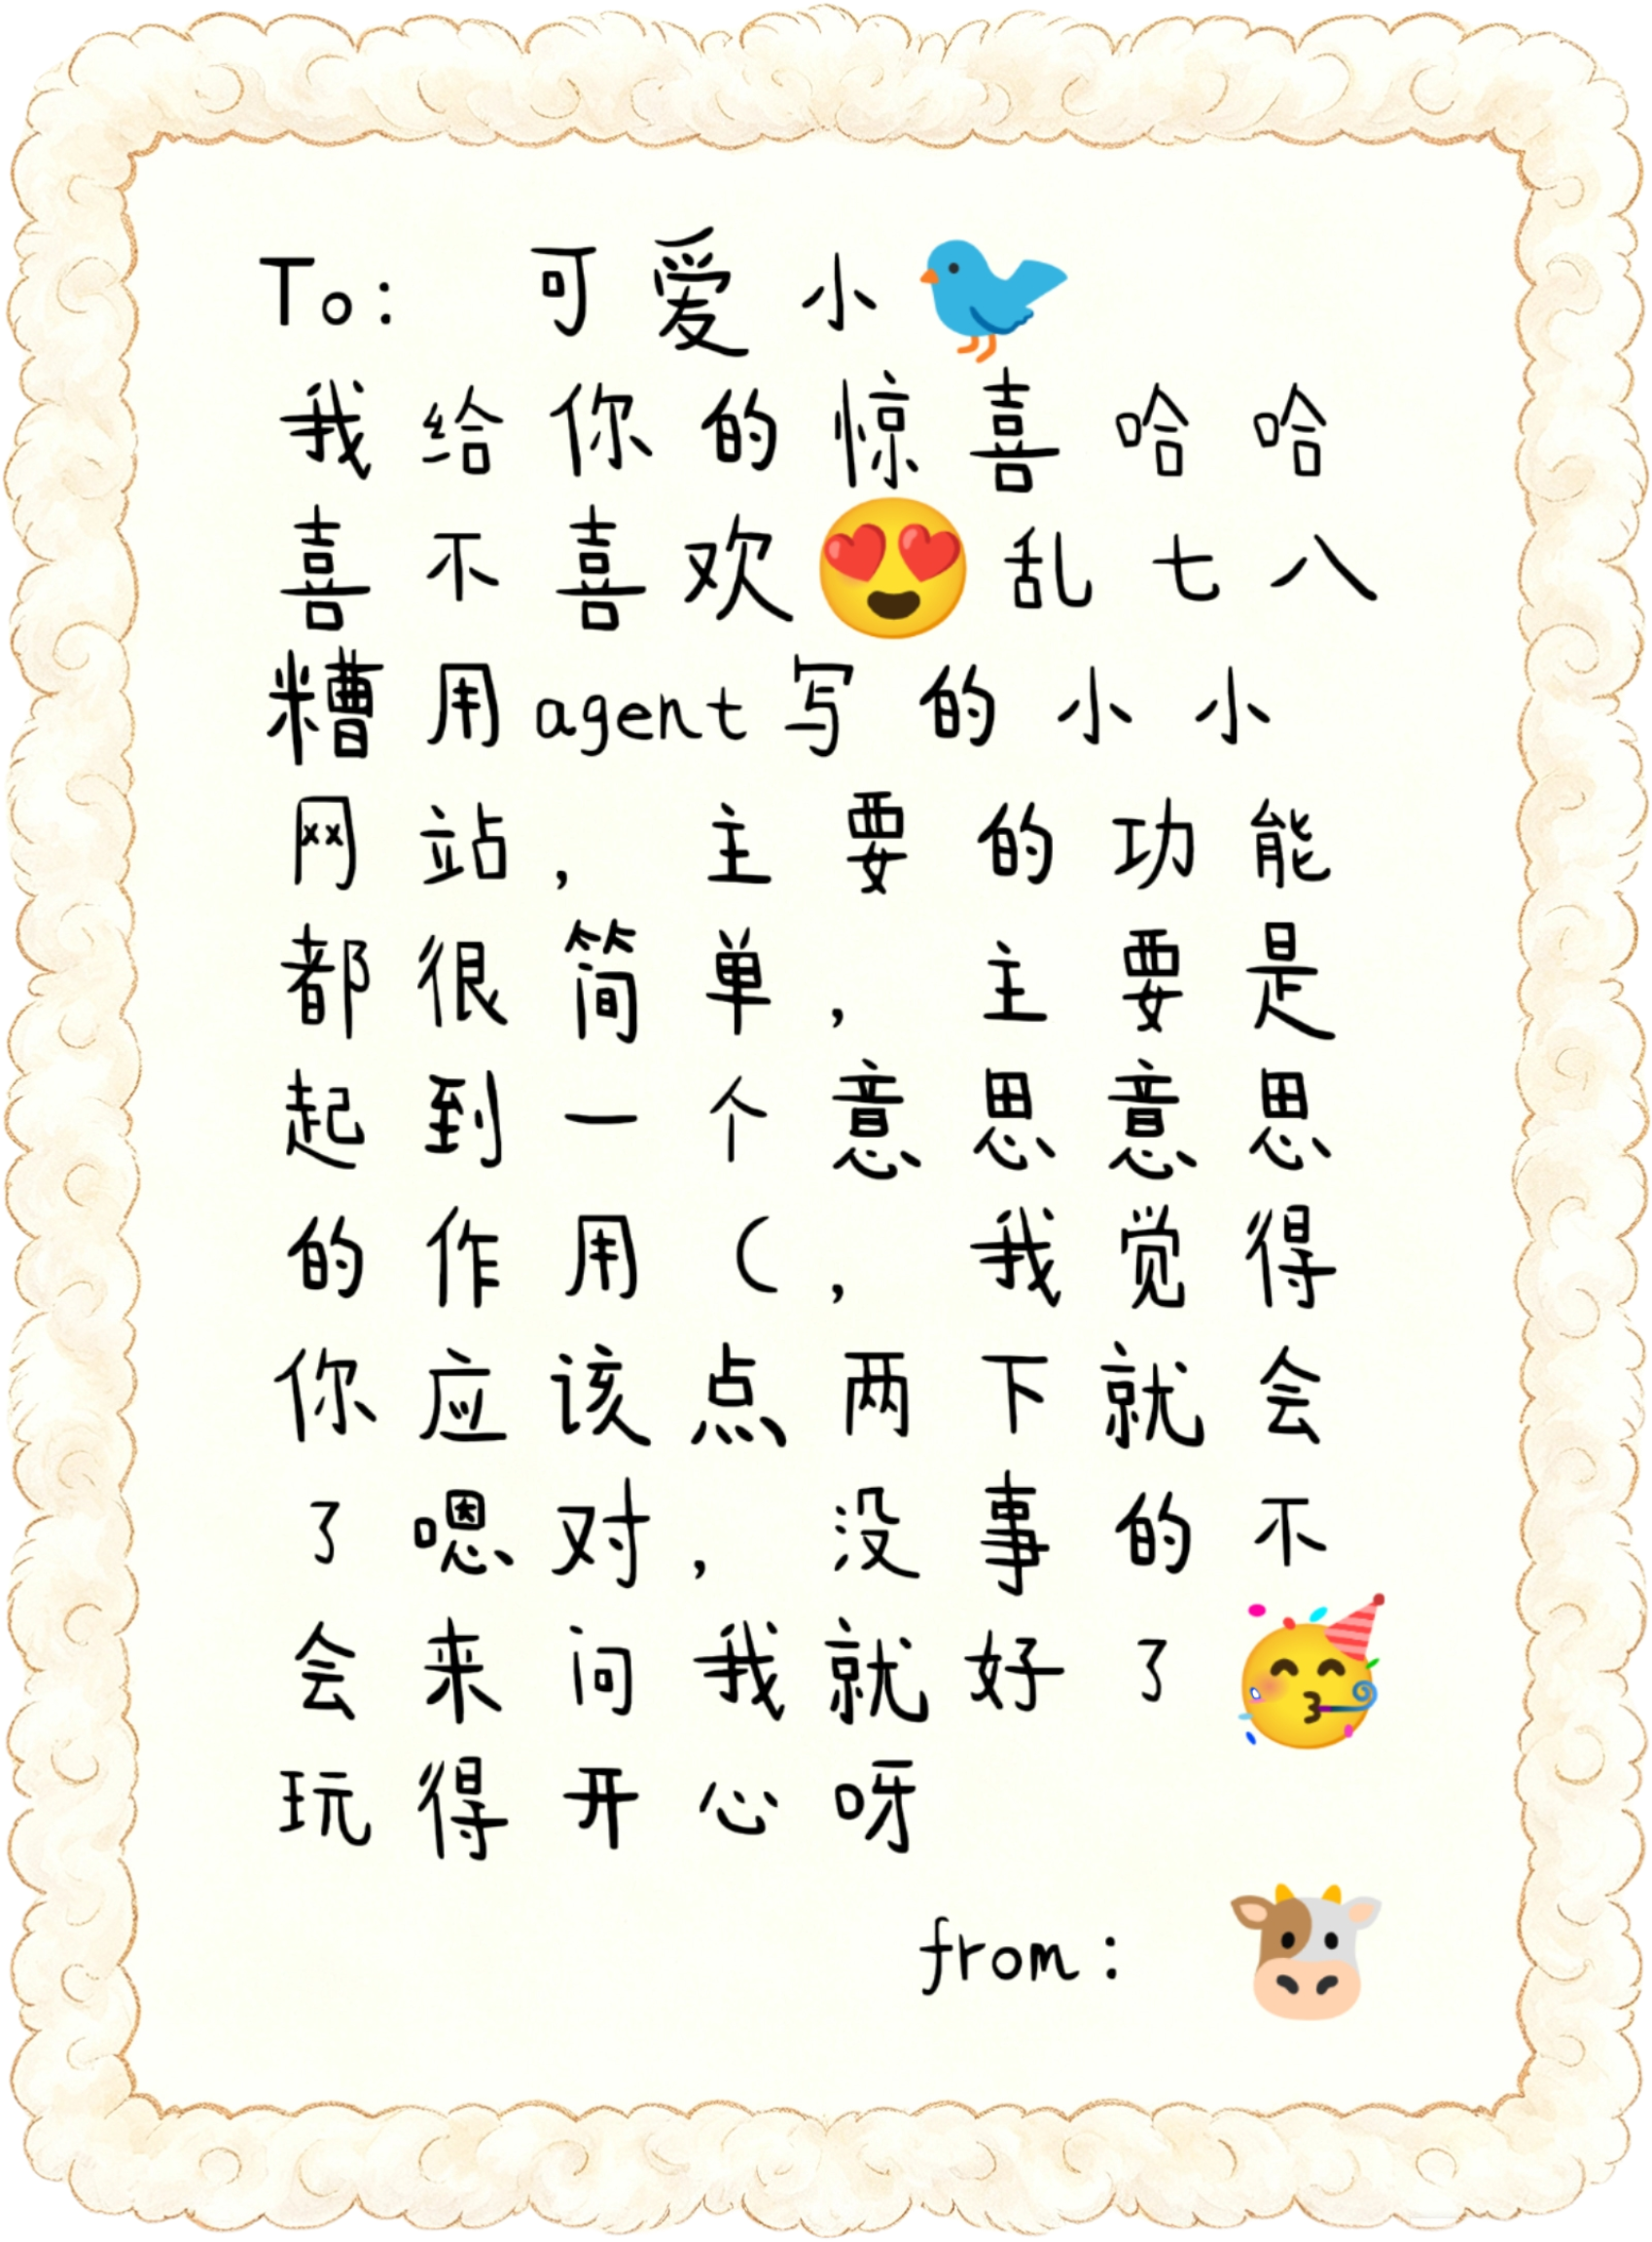 To: 可爱小🐦
我给你的惊喜哈哈
喜不喜欢😍乱七八
糟用agent写的小小
网站，主要的功能
都很简单，主要是
起到一个意思意思
的作用（，我觉得
你应该点两下就会
了嗯对，没事的不
会来问我就好了🥳
玩得开心呀
from: 🐮